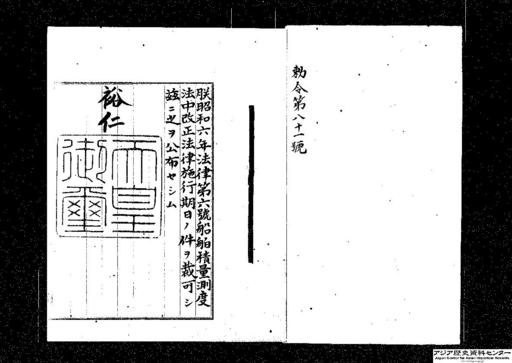 勅令第八十一號
朕昭和六年法律第六號船舶積量測度
法中改正法律施行期日ノ件ヲ裁可シ
玆ニ之ヲ公布セシム
裕仁
天皇
御璽
アジア歴史資料センター
Japan Center for Asian Historical Records